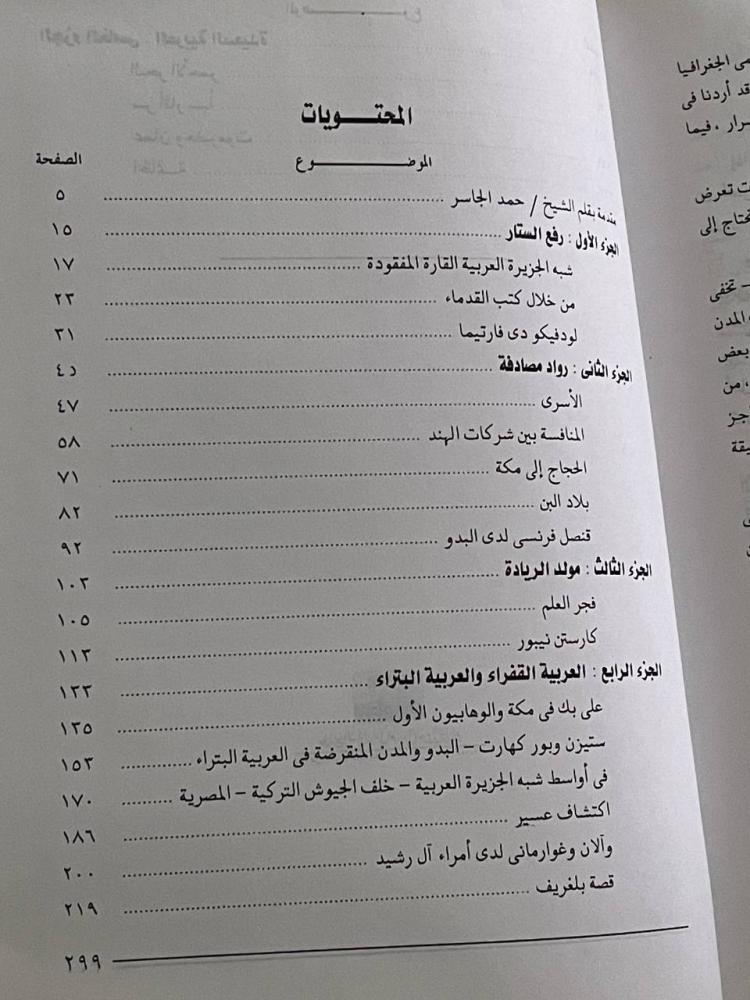 المحتـــويات
الموضـــــــــوع الصفحة
مقدمة بقلم الشيخ / حمد الجاسر ........ ٥
الجزء الأول : رفع الستار ........ ١٥
شبه الجزيرة العربية القارة المفقودة ........ ١٧
من خلال كتب القدماء ........ ٢٣
لودفيكو دى فارتيما ........ ٣١
الجزء الثانى : رواد مصادفة ........ ٤٥
الأسرى ........ ٤٧
المنافسة بين شركات الهند ........ ٥٨
الحجاج إلى مكة ........ ٧١
بلاد البن ........ ٨٢
قنصل فرنسى لدى البدو ........ ٩٢
الجزء الثالث : مولد الريادة ........ ١٠٣
فجر العلم ........ ١٠٥
كارستن نيبور ........ ١١٣
الجزء الرابع : العربية القفراء والعربية البتراء ........ ١٣٣
على بك فى مكة والوهابيون الأول ........ ١٣٥
ستيزن وبور كهارت – البدو والمدن المنقرضة فى العربية البتراء ........ ١٥٣
فى أواسط شبه الجزيرة العربية – خلف الجيوش التركية – المصرية ........ ١٧٠
اكتشاف عسير ........ ١٨٦
وآلان وغوارمانى لدى أمراء آل رشيد ........ ٢٠٠
قصة بلغريف ........ ٢١٩
٢٩٩
مى الجغرافيا
قد أردنا فى
سرار ، فيما
ت تعرض
تحتاج إلى
– تخفى
المدن
بعض
، من